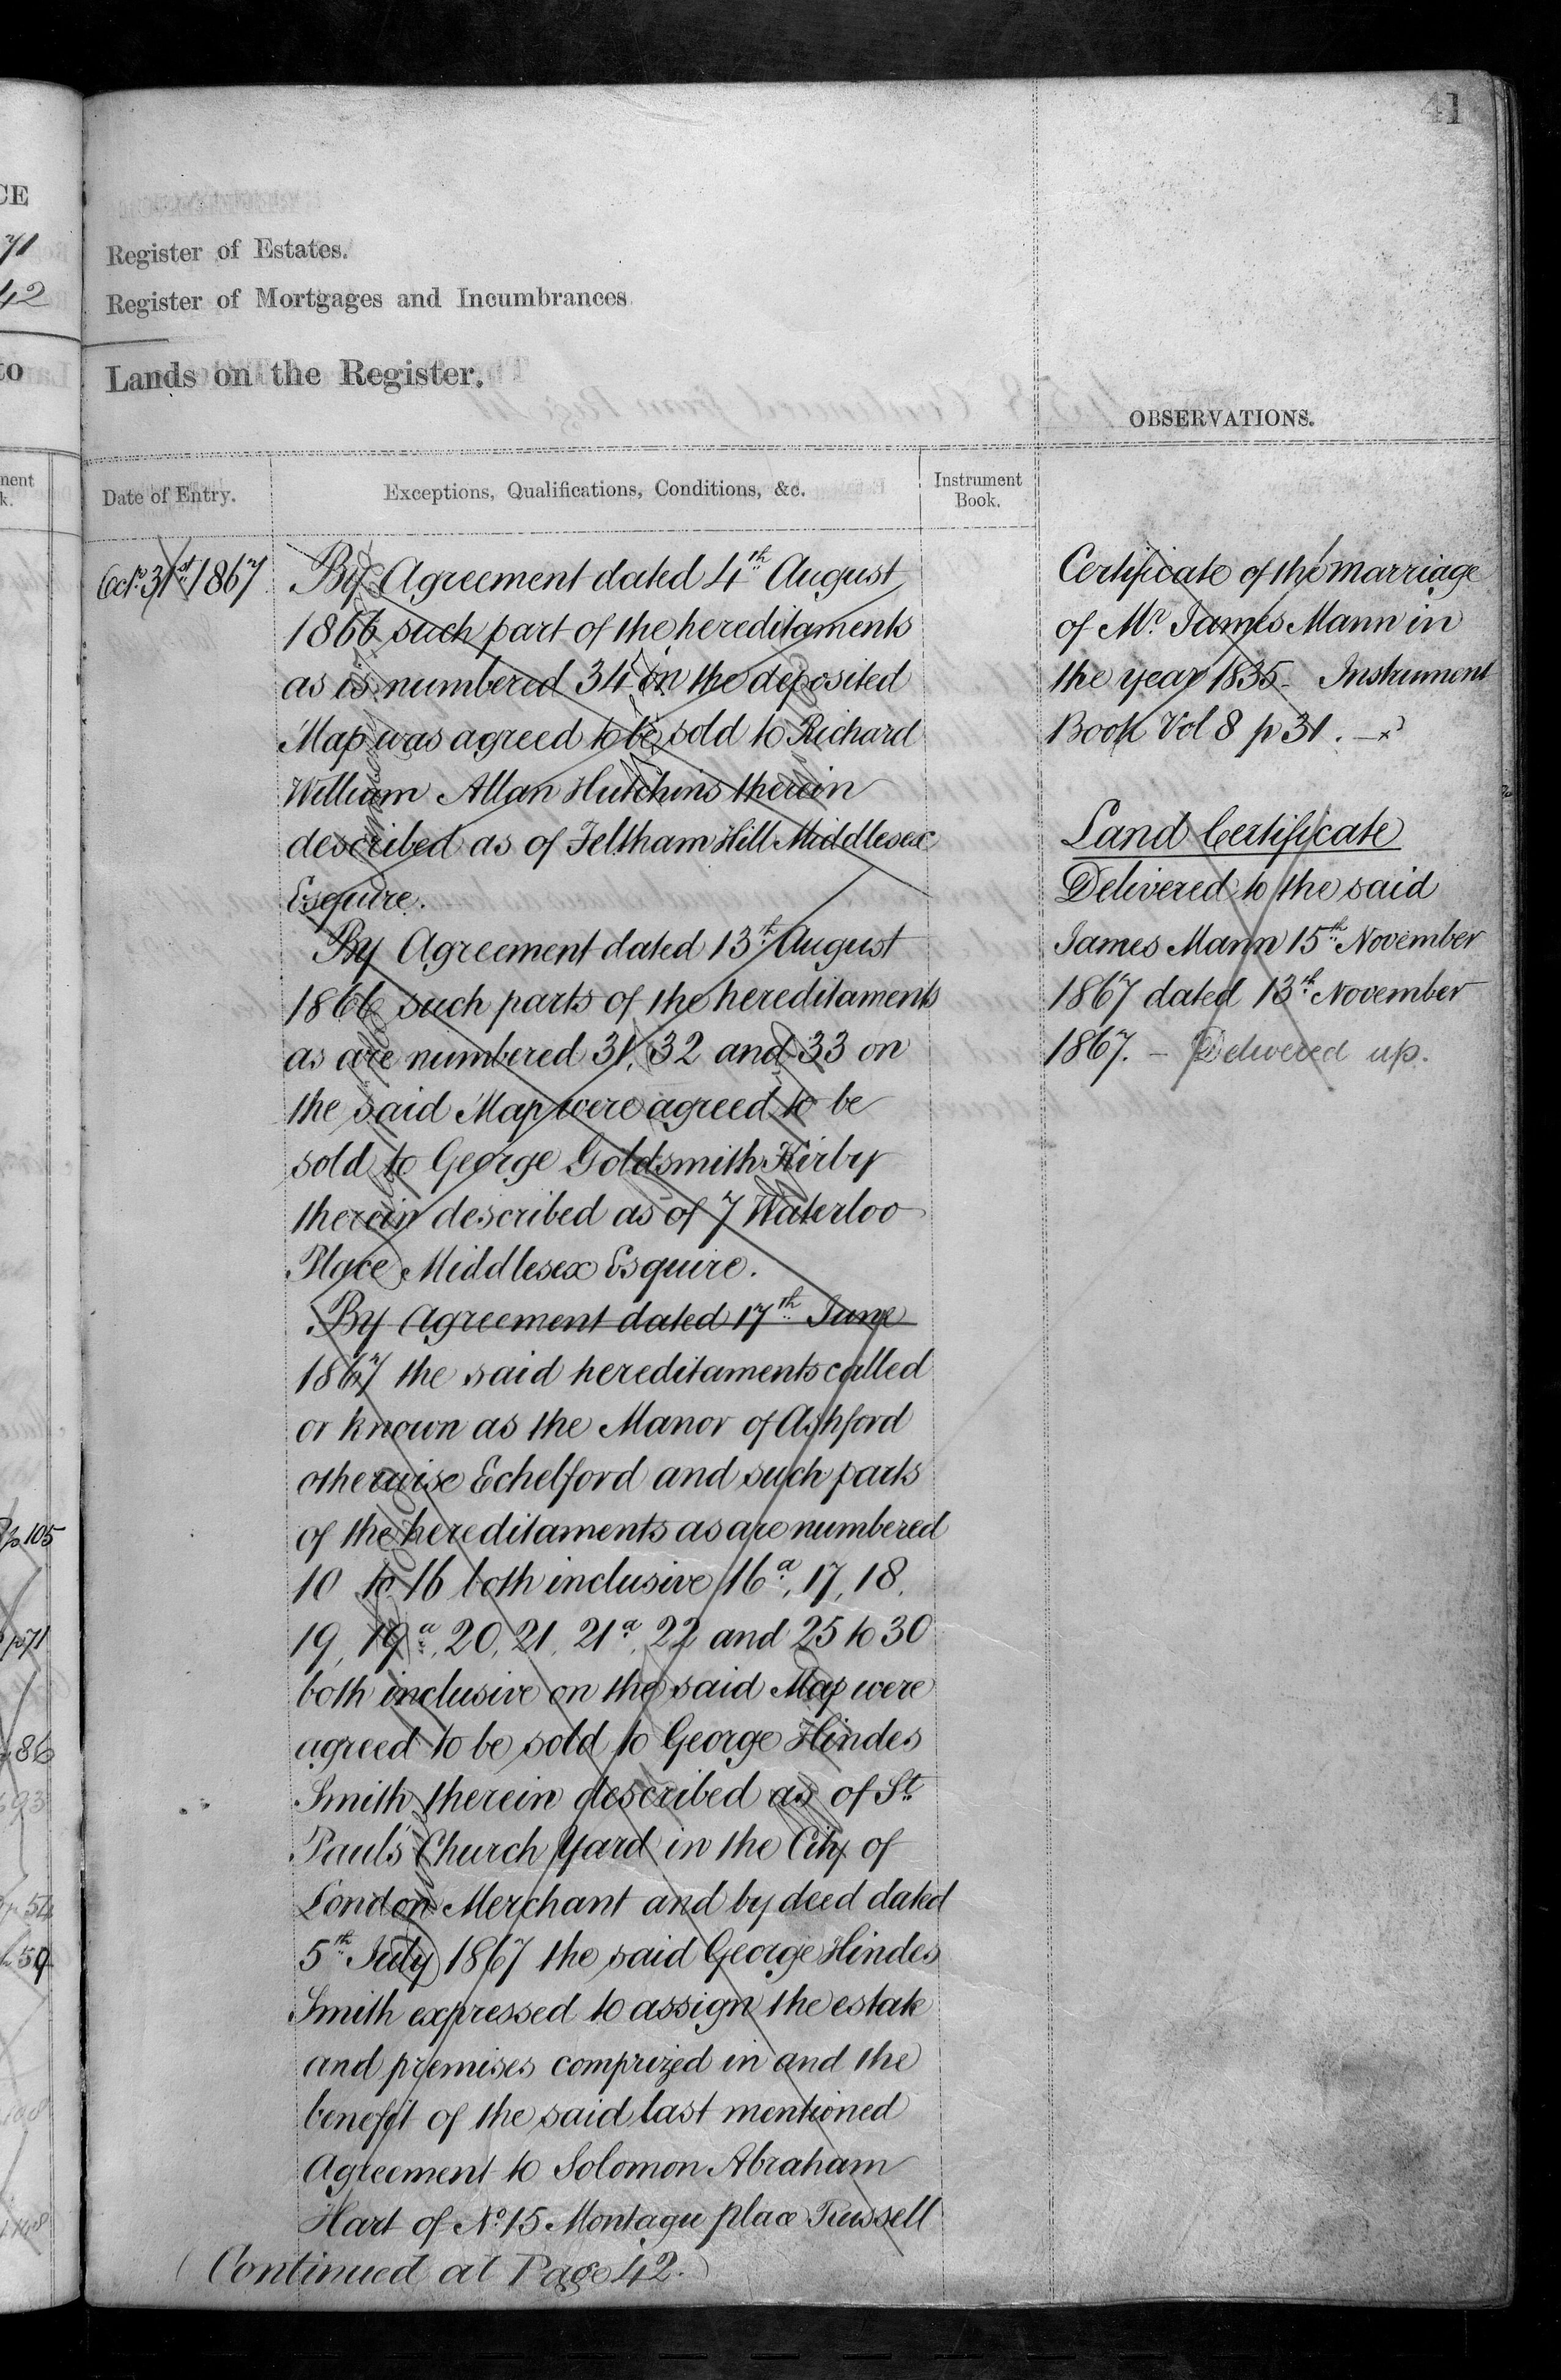 41
Register of Estates.
Register of Mortgages and Incumbrances
Lands on the Register.
OBSERVATIONS.
Date of Entry.
Exceptions, Qualifications, Conditions, &c.
Instrument
Book.
Octr. 31st 1867.
By Agreement dated 4th August
1866 such part of the hereditaments
as is numbered 34 on the deposited
Map was agreed to be sold to Richard
William Allan Hutchins therein
described as of Feltham Hill Middlesex
Esquire.
By Agreement dated 13th August
1866 such parts of the hereditaments
as are numbered 31, 32 and 33 on
the said Map were agreed to be
sold to George Goldsmith Kirby
therein described as of 7 Waterloo
Place Middlesex Esquire.
By Agreement dated 17th June
1867 the said hereditaments called
or known as the Manor of Ashford
otherwise Echelford and such parts
of the hereditaments as are numbered
10 to 16 both inclusive 16a, 17, 18,
19, 19a, 20, 21, 21a, 22 and 25 to 30
both inclusive on the said Map were
agreed to be sold to George Hindes
Smith therein described as of St.
Paul's Church Yard in the City of
London Merchant and by deed dated
5th July 1867 the said George Hindes
Smith expressed to assign the estate
and premises comprized in and the
benefit of the said last mentioned
Agreement to Solomon Abraham
Hart of No. 15 Montagu place Russell
(Continued at Page 42.)
Certificate of the marriage
of Mr. James Mann in
the year 1835 - Instrument
Book Vol 8 p 31. -
Land Certificate
Delivered to the said
James Mann 15th November
1867 dated 13th November
1867. - Delivered up.
CE
71
42
to
ment
k.
p 105
p 71
86
693
p 54
59